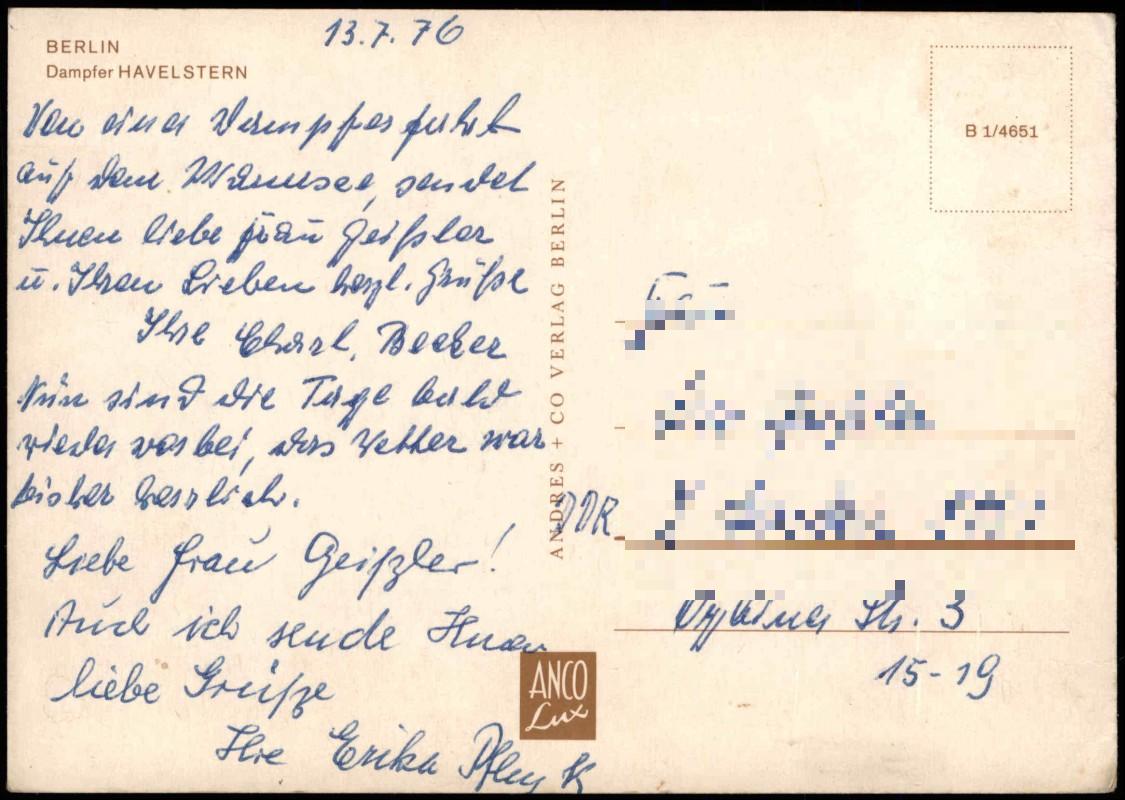 13.7.76
BERLIN
Dampfer HAVELSTERN
Von einer Dampferfahrt
auf dem Wannsee, sendet
Ihnen liebe Frau Geißler
u. Ihren Lieben herzl. Grüße
Ihre Charl. Becker
Nun sind die Tage bald
wieder vorbei, das Wetter war
bisher herrlich.
Liebe Frau Geißler!
Auch ich sende Ihnen
liebe Grüße
Ihre Erika
ANDRES + CO VERLAG BERLIN
ANCO
Lux
B 1/4651
DDR
Str. 3
15-19